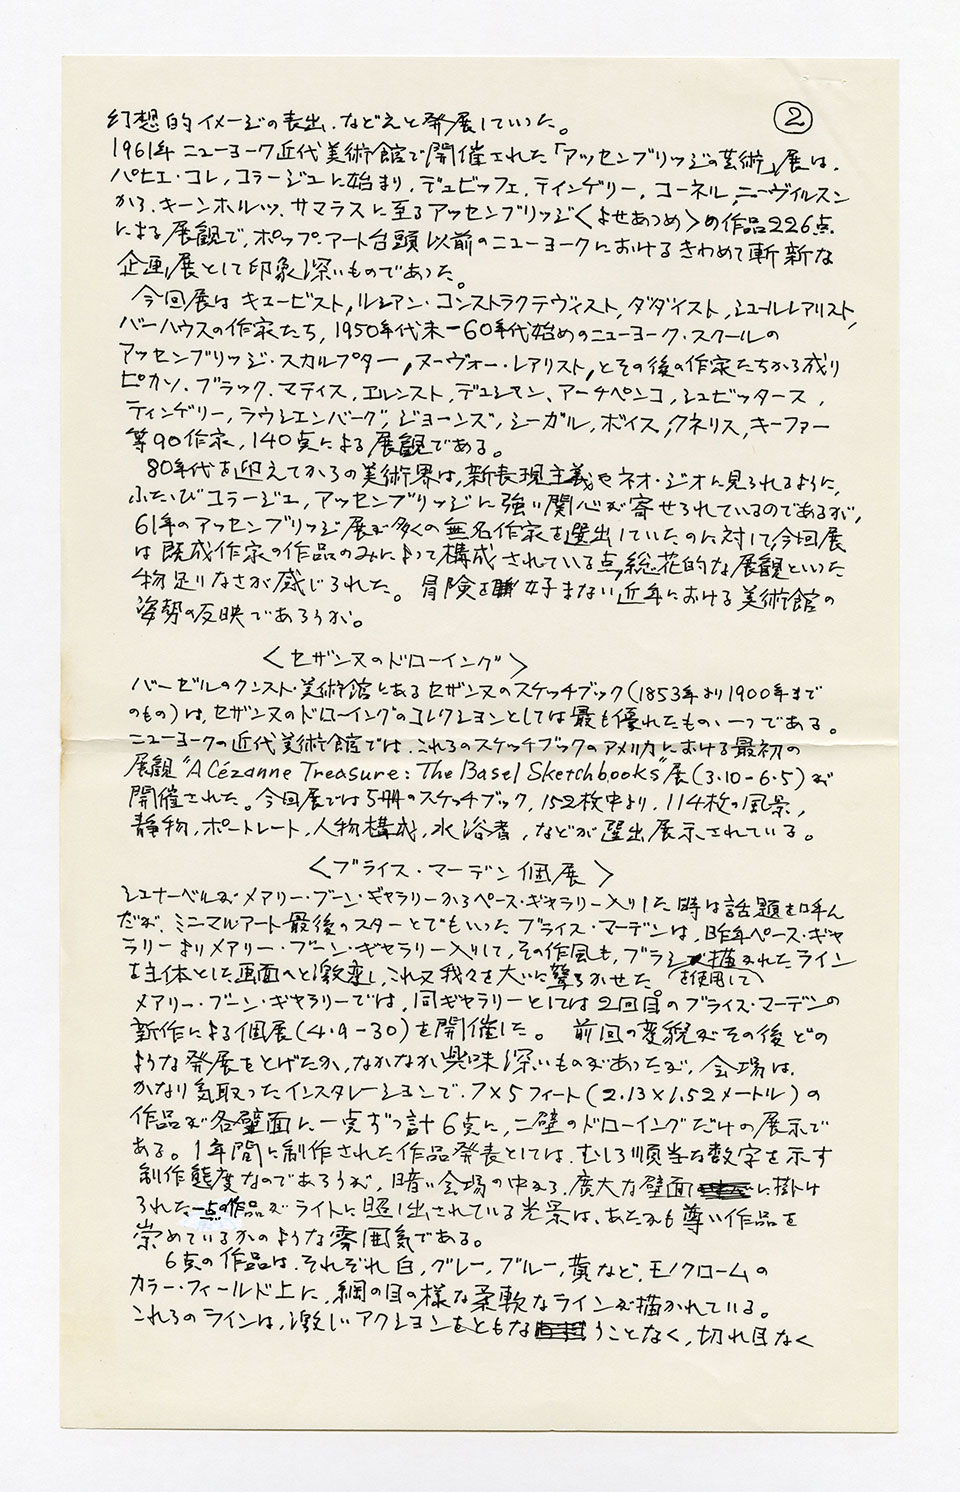 ②
幻想的イメージの表出、などえと発展していった。
1961年ニューヨーク近代美術館で開催された「アッセンブリッジの芸術」展は、
パピエ・コレ、コラージュに始まり、デュビッフェ、テインゲリー、コーネル、ニーヴィルスン
から、キーンホルツ、サマラスに至るアッセンブリッジ〈よせあつめ〉の作品226点
による展観で、ポップ・アート台頭以前のニューヨークにおけるきわめて斬新な
企画展として印象深いものであった。
今回展はキュービスト、ルシアン・コンストラクテヴィスト、ダダイスト、シュールレアリスト、
バーハウスの作家たち、1950年代末ー60年代始めのニューヨーク・スクールの
アッセンブリッジ・スカルプター、ヌーヴォー・レアリスト、とその後の作家たちから成り
ピカソ、ブラック、マティス、エルンスト、デュシャン、アーチペンコ、シュビッタース、
ティンゲリー、ラウシェンバーグ、ジョーンズ、シーガル、ボイス、クネリス、キーファー
等90作家、140点による展観である。
80年代を迎えてからの美術界は、新表現主義やネオ・ジオに見られるように、
ふたたびコラージュ、アッセンブリッジに強い関心が寄せられているのであるが、
61年のアッセンブリッジ展が多くの無名作家を選出していたのに対して、今回展
は既成作家の作品のみによって構成されている点、総花的な展観といった
物足りなさが感じられた。冒険を好まない近年における美術館の
姿勢の反映であろうか。
〈セザンヌのドローイング〉
バーゼルのクンスト・美術館にあるセザンヌのスケッチブック(1853年より1900年まで
のもの)は、セザンヌのドローイングのコレクションとしては最も優れたもの、一つである。
ニューヨークの近代美術館では、これらのスケッチブックのアメリカにおける最初の
展観"A Cézanne Treasure: The Basel Sketchbooks"展(3・10-6・5)が
開催された。今回展では5冊のスケッチブック、152枚中より、114枚の風景、
静物、ポートレート、人物構成、水浴者、などが選出展示されている。
〈ブライス・マーデン個展〉
シュナーベルがメアリー・ブーン・ギャラリーからペース・ギャラリー入りした時は話題を呼ん
だが、ミニマルアート最後のスターとでもいったブライス・マーデンは、昨年ペース・ギャ
ラリーよりメアリー・ブーン・ギャラリー入りして、その作風も、ブラシを使用して描かれたライン
を主体とした画面へと激変し、これ又我々を大いに驚ろかせた。
メアリー・ブーン・ギャラリーでは、同ギャラリーとしては2回目のブライス・マーデンの
新作による個展(4・9-30)を開催した。 前回の変貌がその後どの
ような発展をとげたか、なかなか興味深いものがあったが、会場は、
かなり気取ったインスタレーションで、7×5フィート(2.13×1.52メートル)の
作品が各壁面に一点ずつ計6点に、二壁のドローイングだけの展示で
ある。1年間に制作された作品発表としては、むしろ順当な数字を示す
制作態度なのであろうが、暗い会場の中から、広大な壁面に掛け
られた一点の作品がライトに照し出されている光景は、あたかも尊い作品を
崇めているかのような雰囲気である。
6点の作品は、それぞれ白、グレー、ブルー、黄など、モノクロームの
カラー・フィールド上に、網の目の様な柔軟なラインが描かれている。
これらのラインは、激しいアクションをともなうことなく、切れ目なく